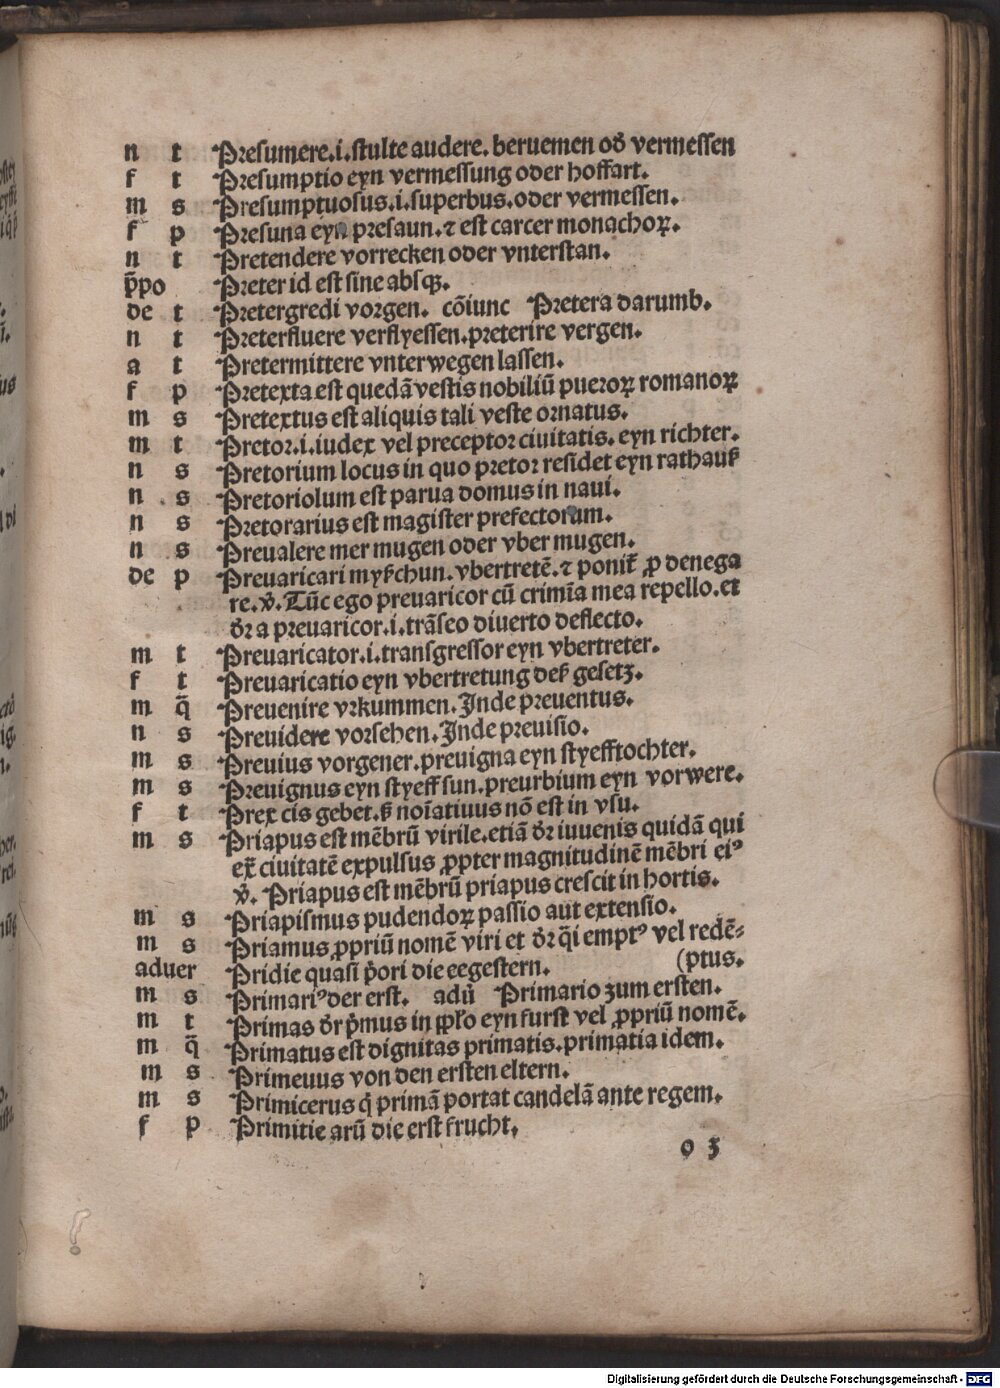 n t Presumere.i.stulte audere. beruemen oď vermessen
f t Presumptio eyn vermessung oder hoffart.
m s Presumptuosus.i.superbus.oder vermessen.
f p Presuna eyn presaun.⁊ est carcer monachoꝝ.
n t Pretendere vorrecken oder vnterstan.
p̄po Preter id est sine absqꝫ.
de t Pretergredi vorgen. cōiunc Pretera darumb.
n t Preterfluere verflyessen.preterire vergen.
a t Pretermittere vnterwegen lassen.
f p Pretexta est quedā vestis nobiliū pueroꝝ romanoꝝ
m s Pretextus est aliquis tali veste ornatus.
m t Pretor.i.iudex vel preceptor ciuitatis. eyn richter.
n s Pretorium locus in quo pretor residet eyn rathauß
n s Pretoriolum est parua domus in naui.
n s Pretorarius est magister prefectorum.
n s Preualere mer mugen oder vber mugen.
de p Preuaricari myßchun. vbertretē.⁊ ponit̄ ꝓ denega
re.v̄. Tūc ego preuaricor cū crimīa mea repello.et
dr̄ a preuaricor.i.trāseo diuerto deflecto.
m t Preuaricator.i.transgressor eyn vbertreter.
f t Preuaricatio eyn vbertretung deß gesetz.
m q̄ Preuenire vrkummen. Inde preuentus.
n s Preuidere vorsehen. Inde preuisio.
m s Preuius vorgener.preuigna eyn styefftochter.
m s Preuignus eyn styeff sun.preurbium eyn vorwere.
f t Prex cis gebet.ß noīatiuus nō est in vsu.
m s Priapus est mēbrū virile.etiā dr̄ iuuenis quidā qui
ex̄ ciuitatē expulsus ꝓpter magnitudinē mēbri eiꝰ
v̄. Priapus est mēbrū priapus crescit in hortis.
m s Priapismus pudendoꝝ passio aut extensio.
m s Priamus ꝓpriū nomē viri et dr̄ q̄i emptꝰ vel redē-
aduer Pridie quasi p̄ori die eegestern. (ptus.
m s Primariꝰ der erst. adū Primario zum ersten.
m t Primas dr̄ p̄mus in pp̄lo eyn furst vel ꝓpriū nomē.
m q̄ Primatus est dignitas primatis.primatia idem.
m s Primeuus von den ersten eltern.
m s Primicerus q̄ primā portat candelā ante regem.
f p Primitie arū die erst frucht.
o 3
Digitalisierung gefördert durch die Deutsche Forschungsgemeinschaft - DFG